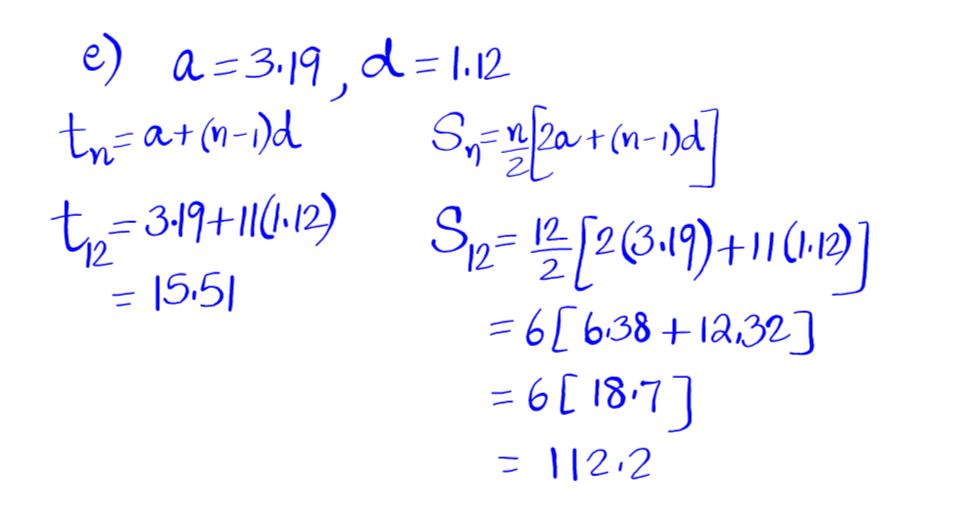 e) a = 3.19, d = 1.12
tₙ = a + (n-1)d
t₁₂ = 3.19 + 11(1.12)
= 15.51
Sₙ = n/2 [2a + (n-1)d]
S₁₂ = 12/2 [2(3.19) + 11(1.12)]
= 6[6.38 + 12.32]
= 6[18.7]
= 112.2